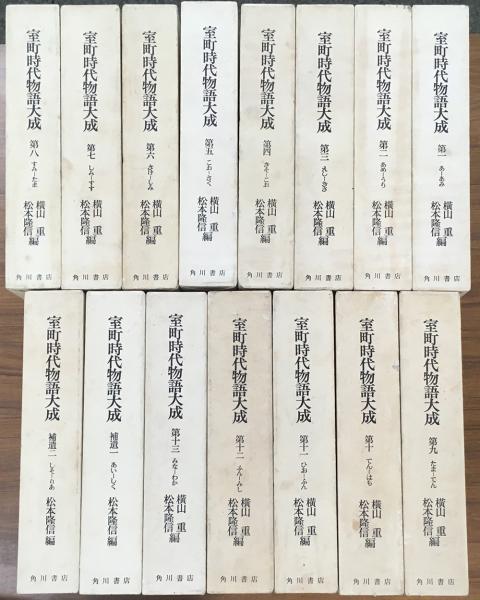 室町時代物語大成 第一 あ―あみ 横山重 松本隆信 編 角川書店
室町時代物語大成 第二 あめ―うり 横山重 松本隆信 編 角川書店
室町時代物語大成 第三 えし―きき 横山重 松本隆信 編 角川書店
室町時代物語大成 第四 きよ―こお 横山重 松本隆信 編 角川書店
室町時代物語大成 第五 こお―さく 横山重 松本隆信 編 角川書店
室町時代物語大成 第六 さけ―しみ 横山重 松本隆信 編 角川書店
室町時代物語大成 第七 しみ―すす 横山重 松本隆信 編 角川書店
室町時代物語大成 第八 すみ―たま 横山重 松本隆信 編 角川書店
室町時代物語大成 第九 たま―てん 横山重 松本隆信 編 角川書店
室町時代物語大成 第十 てん―はも 横山重 松本隆信 編 角川書店
室町時代物語大成 第十一 ひお―ふん 横山重 松本隆信 編 角川書店
室町時代物語大成 第十二 ふん―みし 横山重 松本隆信 編 角川書店
室町時代物語大成 第十三 みな―わか 横山重 松本隆信 編 角川書店
室町時代物語大成 補遺一 あい―しく 松本隆信 編 角川書店
室町時代物語大成 補遺二 しそ―りあ 松本隆信 編 角川書店